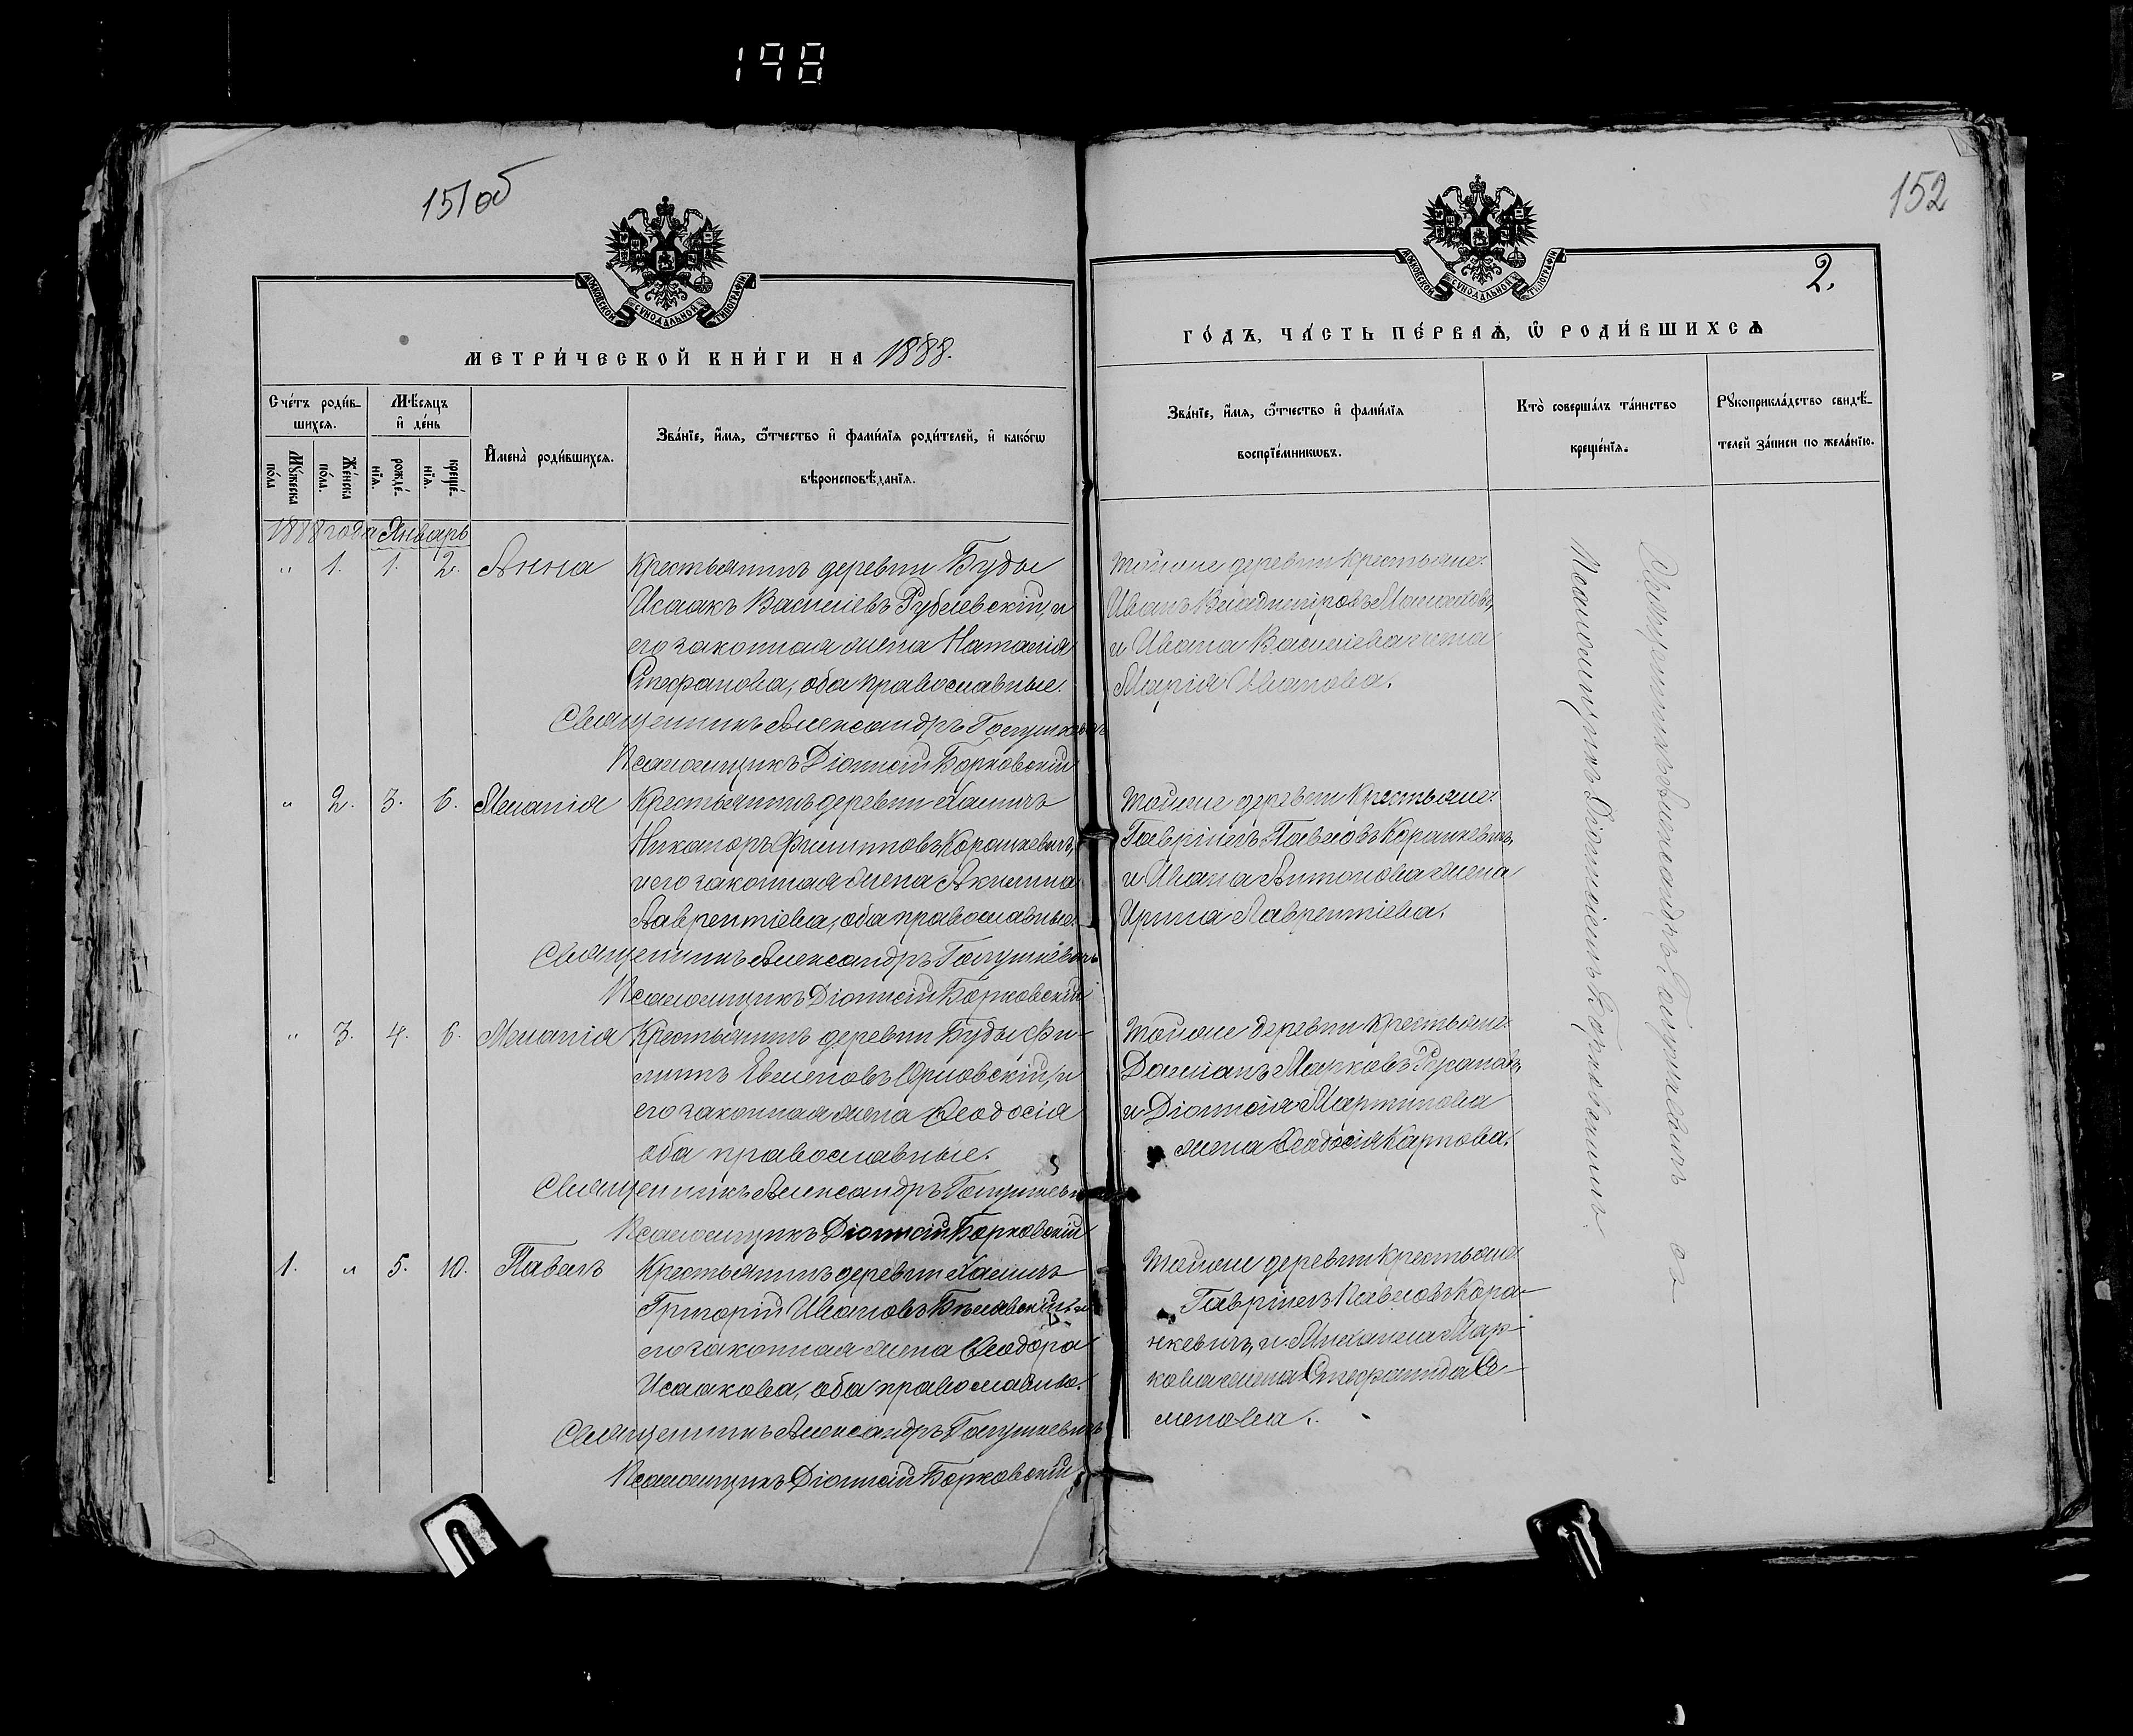 198
151об
МОСКОВСКОЙ СѴНОДАЛЬНОЙ ТИПОГРАФІИ
МЕТРИ́ЧЕСКОЙ КНИ́ГИ НА 1888.
Сче́тъ роди́в-
шихся.
Мѣ́сяцъ
и҆ де́нь
Мꙋ́жеска
по́ла
Же́нска
по́ла.
рожде́-
нїя.
креще́-
нїя.
И҆мена̀ роди́вшихся.
Зва́нїе, и҆́мя, ѻ҆́тчество и҆ фами́лїя роди́телей, и҆ како́гѡ
вѣроисповѣ́данїя.
1888 года Январь
" 1. 1. 2. Анна
Крестьянинъ деревни Буды
Исаакъ Василіевъ Рублевскій, и
его законная жена Наталія
Стефанова, оба православные.
Священникъ Александръ
Псаломщикъ Діонисій Борковскій
" 2. 3. 6. Меланія
Крестьянинъ деревни
Никаноръ Филипповъ Коранкевичъ,
и его законная жена Акилина
Лаврентіева, оба православные.
Священникъ Александръ
Псаломщикъ Діонисій Борковскій
" 3. 4. 6. Меланія
Крестьянинъ деревни Буды Фи-
липъ Орловскій, и
его законная жена Ѳеодосія
оба православные.
Священникъ Александръ
Псаломщикъ Діонисій Борковскій
1. " 5. 10. Павелъ
Крестьянинъ деревни
Григорій Ивановъ и
его законная жена Ѳеодора
Исаакова, оба православные.
Священникъ Александръ
Псаломщикъ Діонисій Борковскій
152
2.
МОСКОВСКОЙ СѴНОДАЛЬНОЙ ТИПОГРАФІИ
ГО́ДЪ, ЧА́СТЬ ПЕ́РВАѦ, Ѡ҆ РОДИ́ВШИХСѦ
Зва́нїе, и҆́мя, ѻ҆́тчество и҆ фами́лїя
воспрїе́мникѡвъ.
Кто̀ соверша́лъ та́инство
креще́нїя.
Рꙋкоприкла́дство свидѣ́-
телей за́писи по жела́нїю.
тойже деревни крестьяне:
Иванъ Владиміровъ
и Ивана Василіева жена
Марія Иванова.
тойже деревни крестьяне:
Гавріилъ Павловъ Коранкевичъ,
и Ивана Антонова жена
Ирина Лаврентіева.
тойже деревни крестьяне:
Даміанъ Марковъ
и Діонисія Мартинова
жена Ѳеодосія Карпова.
тойже деревни крестьяне:
Гавріилъ Павловъ Кора-
нкевичъ, и Михаила Мар-
кова жена Стефанида Се-
менова.
Священникъ Александръ съ
Псаломщикомъ Діонисіемъ Борковскимъ